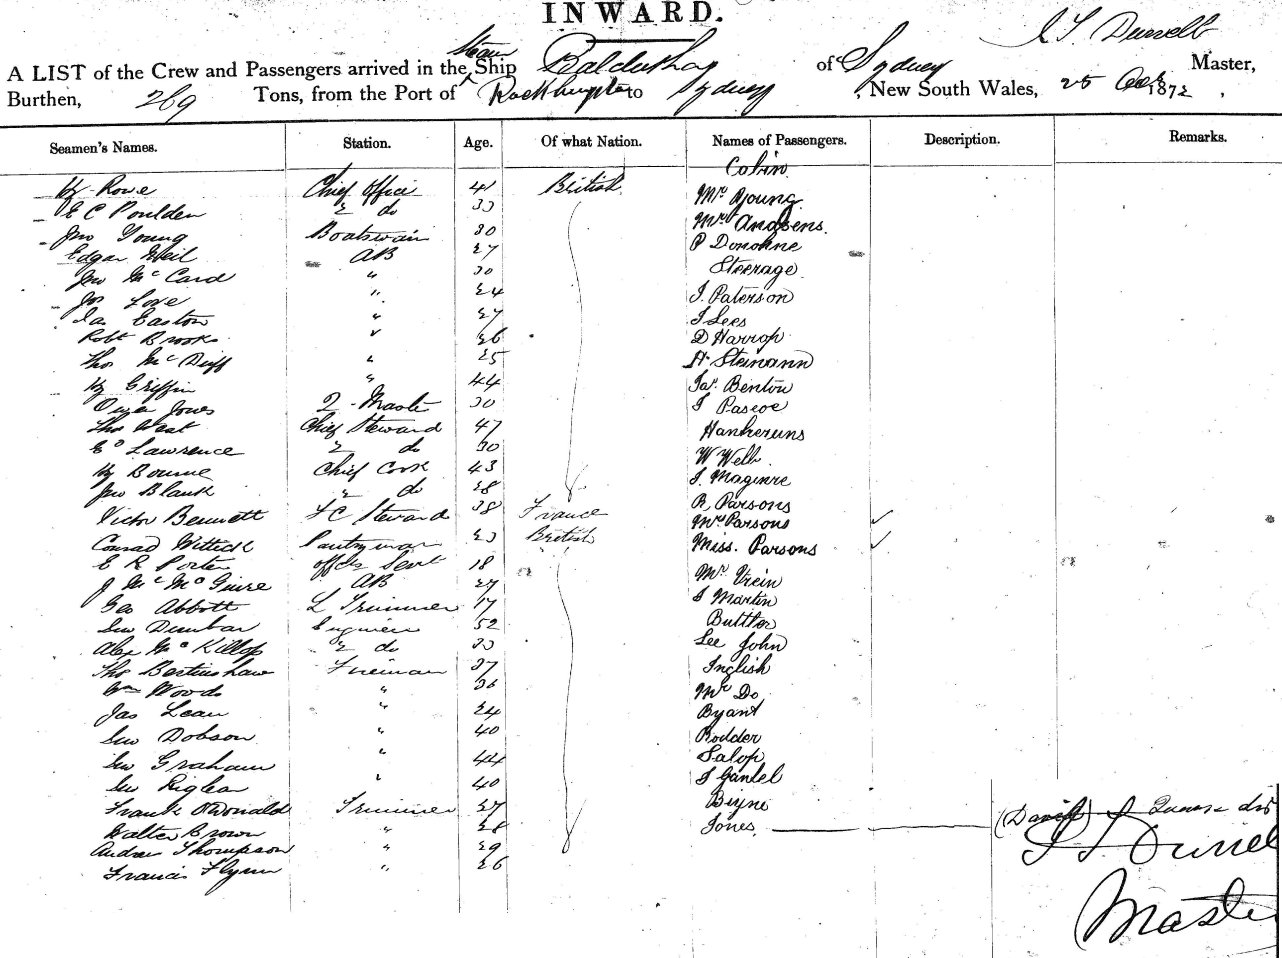 INWARD.
A LIST of the Crew and Passengers arrived in the Steam Ship Balclutha of Sydney Master,
Burthen, 269 Tons, from the Port of Rockhampton to Sydney, New South Wales, 25 1872,
Seamen's Names. Station. Age. Of what Nation. Names of Passengers. Description. Remarks.
Cabin
Hy Rowe Chief Officer 41 British Mr Young
E C Poulden 2 do 33
Jno Young Boatswain 30
Edgar Neil AB 27 P Donohue
Jno McCard " 30 Steerage
Jos Love " 24 J. Paterson
Jas Easton " 27 J Lees
Robt Brooks " 26 D Harrop
Thos McDuff " 25 H Steinann
Hy Griffin " 44 Jas. Benton
Owen Jones Q-Master 30 J Pascoe
Thos West Chief Steward 47
Ed Lawrence 2 do 30 W Webb
Hy Bourne Chief Cook 43 J. Maginre
Jno Blank 2 do 28 R Parsons
Victor Bennett F C Steward 38 France Mrs Parsons
Conrad Wittick Pantryman 23 British Miss. Parsons
E R Porter offcrs Servt 18
J McGuire AB 27 J Martin
Geo Abbott L Trimmer 17 Buttler
Dunbar Engineer 52 Lee John
Alex McKillop 2 do 33 Inglish
Thos Bertinshaw Fireman 37 Mr Do
Wm Woods " 36 Byant
Jas Lean " 24 Rodder
Dobson " 40 Salop
Graham " 44
" 40
Frank O'Donald Trimmer 27 Jones (David)
Walter Brown " 28
Andrew Thompson " 29
Francis Flynn " 26
Master